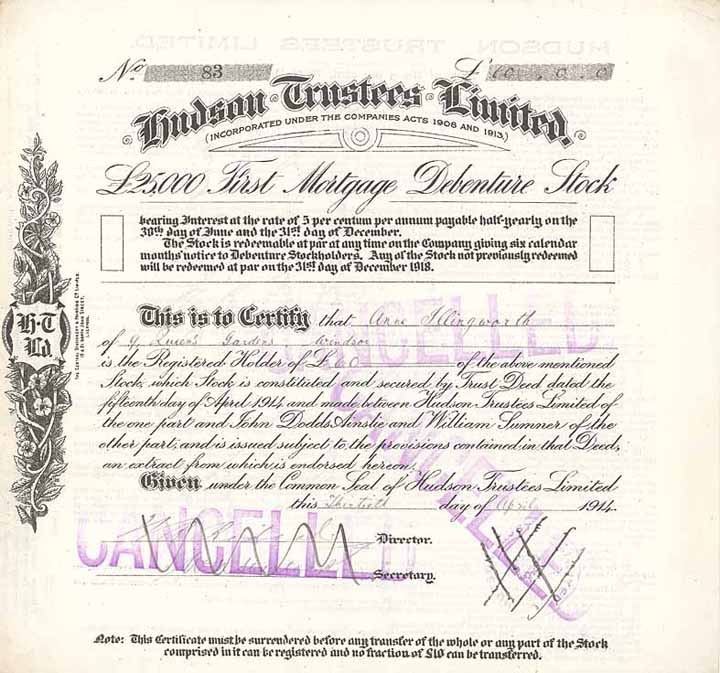 No 83 £ 10 . 0 . 0
Hudson Trustees Limited.
(INCORPORATED UNDER THE COMPANIES ACTS 1908 AND 1913.)
£25,000 First Mortgage Debenture Stock
bearing Interest at the rate of 5 per centum per annum payable half-yearly on the
30th day of June and the 31st day of December.
The Stock is redeemable at par at any time on the Company giving six calendar
months' notice to Debenture Stockholders. Any of the Stock not previously redeemed
will be redeemed at par on the 31st day of December 1918.
H·T
Ld.
This is to Certify that Anne Illingworth
of 9, Queen's Gardens, Windsor
is the Registered Holder of £10 of the above mentioned
Stock, which Stock is constituted and secured by Trust Deed dated the
fifteenth day of April 1914 and made between Hudson Trustees Limited of
the one part and John Dodds Ainslie and William Sumner of the
other part, and is issued subject to the provisions contained in that Deed,
an extract from which is endorsed hereon.
Given under the Common Seal of Hudson Trustees Limited
this Thirtieth day of April 1914.
Director.
Secretary.
CANCELLED
CANCELLED
CANCELLED
Note: This Certificate must be surrendered before any transfer of the whole or any part of the Stock
comprised in it can be registered and no fraction of £10 can be transferred.